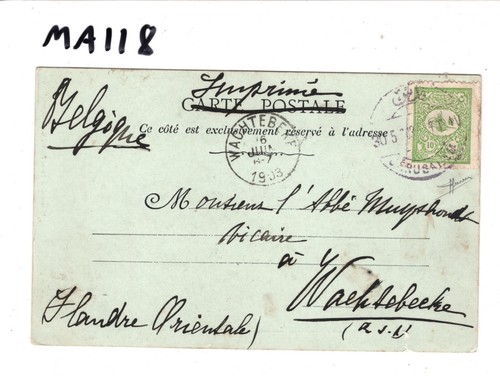 MA118
Imprimé
CARTE POSTALE
Belgique
Ce côté est exclusivement réservé à l'adresse
WACHTEBEKE
JUIN
1903
10
Monsieur l'Abbé
vicaire
à
Wachtebecke
Flandre Orientale)